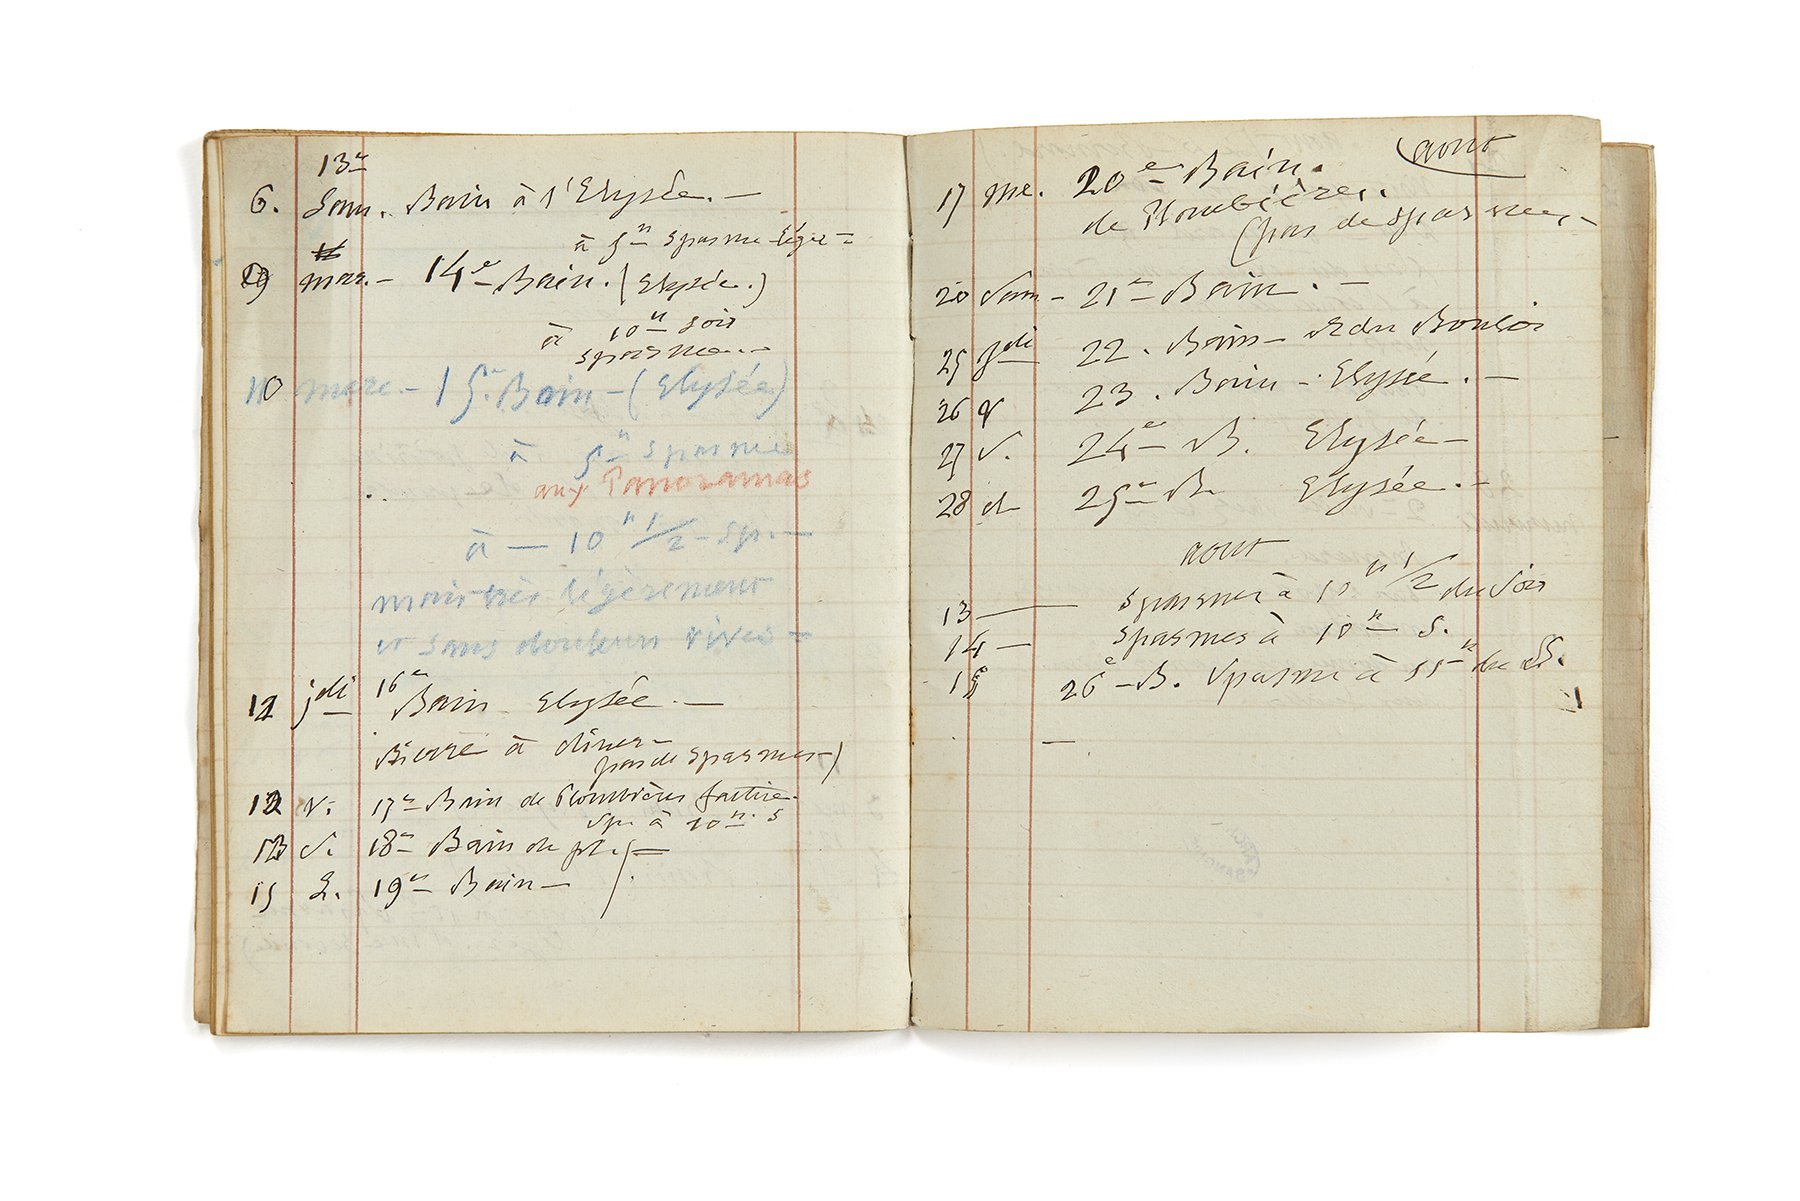 13e
6. Sam. Bain à l'Elysée. —
à 5h spasme léger —
9 mar. — 14e Bain. (Elysée.)
à 10h soir
spasme. —
10 merc. — 15e Bain — (Elysée)
à 5h spasme
aux Panoramas
à — 10h 1/2 — sp. —
mais très légèrement
et sans douleurs vives —
11 jdi 16e Bain Elysée. —
Bierre à diner —
pas de spasmes —)
12 v. 17e Bain de Plombières
sp. à 10h. s
13 S. 18e Bain de pl. —
15 L. 19e Bain —
aout
17 me. 20e Bain.
de Plombières.
(pas de spasmes, —
20 Sam — 21e Bain. —
25 jdi 22. Bain —
26 v 23. Bain — Elysée. —
27 S. 24e B. Elysée —
28 d 25e B. Elysée. —
aout
13 — spasmes à 10h 1/2 du soir
14 — spasmes à 10h s.
15 26e — B. Spasme à 11h du S.